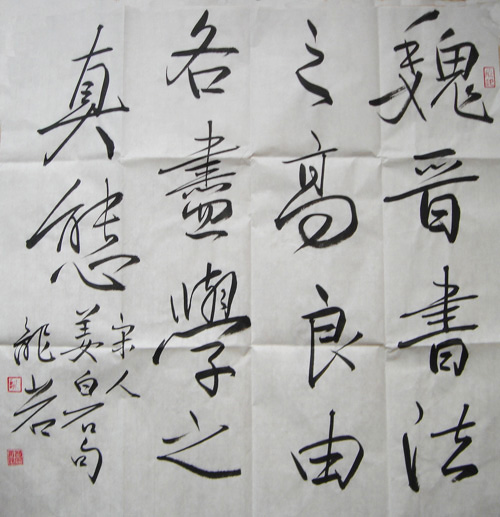 魏晋書法
之高良由
各盡學之
真態
宋人
姜白石句
龍岩